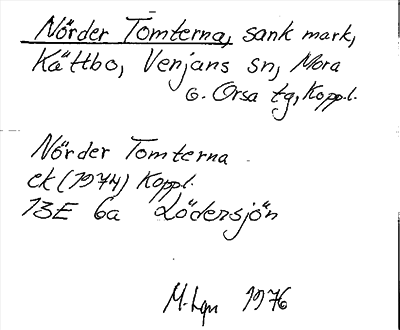 Nörder Tomterna, sank mark,
Kättbo, Venjans sn, Mora
o. Orsa tg, Koppl.
Nörder Tomterna
ek (1974) Koppl.
13E 6a Lödersjön
1976